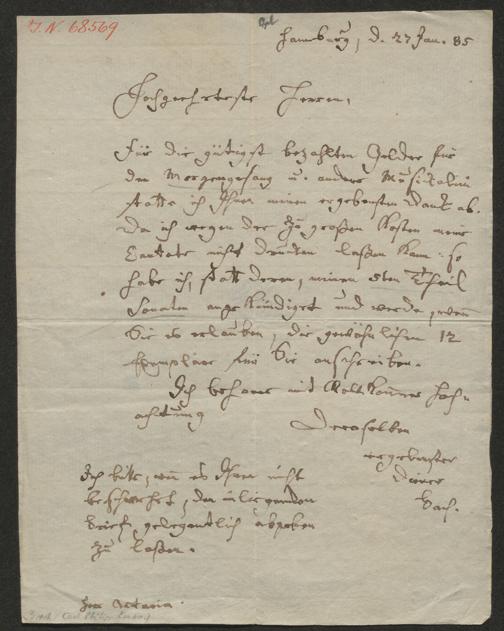 I. N. 68569
Hamburg, d. 27 Jan. 85
Hochgeehrteste Herren,
Für die gütigst bezahlten Gelder für
den Morgengesang u. andere Musikalien
statte ich Ihnen meinen ergebensten Dank ab.
Da ich wegen der zu großen Kosten meine
Cantate nicht drucken laßen kann: so
habe ich, statt deren, meinen 5ten Theil
Sonaten angekündiget und werde, wenn
Sie es erlauben, die gewöhnlichen 12
Exemplare für Sie anschreiben.
Ich beharre mit vollkommner Hoch-
achtung
Deroselben
ergebenster
Diener
Bach.
Ich bitte, wenn es Ihnen nicht
beschwerlich, den inliegenden
Brief, gelegentlich abgeben
zu laßen.
Artaria